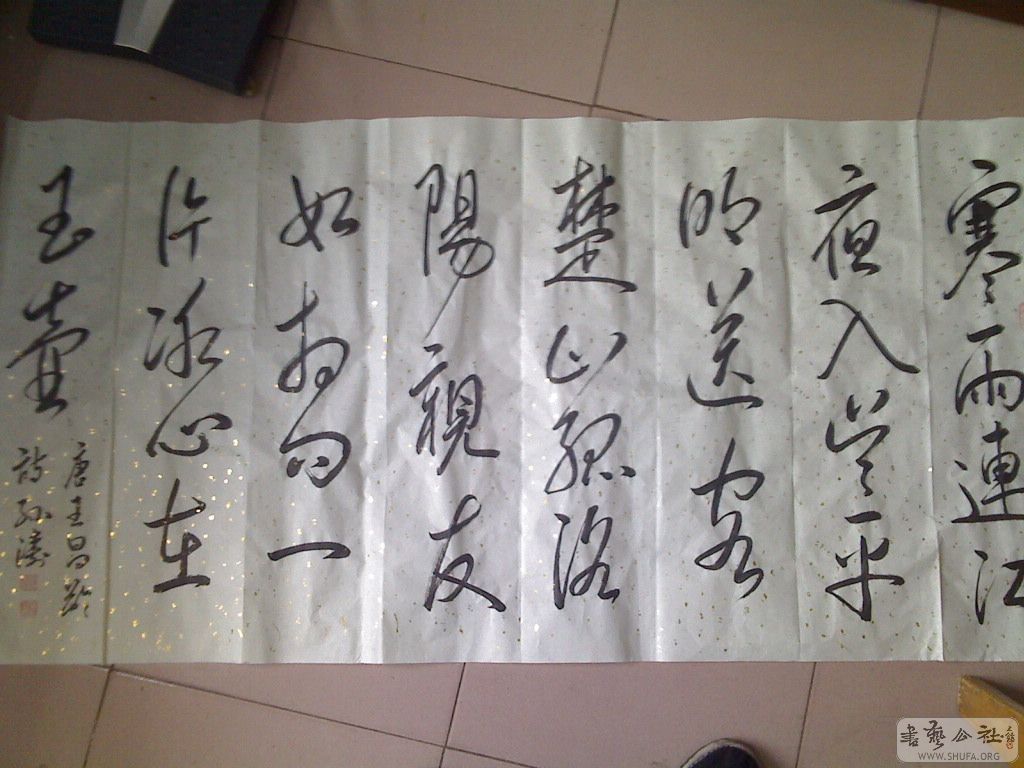 寒雨連江
夜入吴平
明送客
楚山孤洛
陽親友
如相问一
片冰心在
玉壶
唐王昌龄
诗孙涛
書藝公社
WWW.SHUFA.ORG